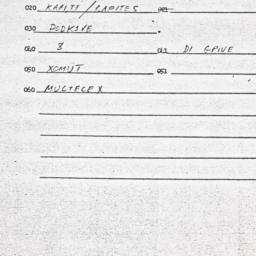 020 KAPITI / PAPITES
030 PODKOVE
040 3 041 DI GRIVE
050 XOMUT 051
060 MULTECEX